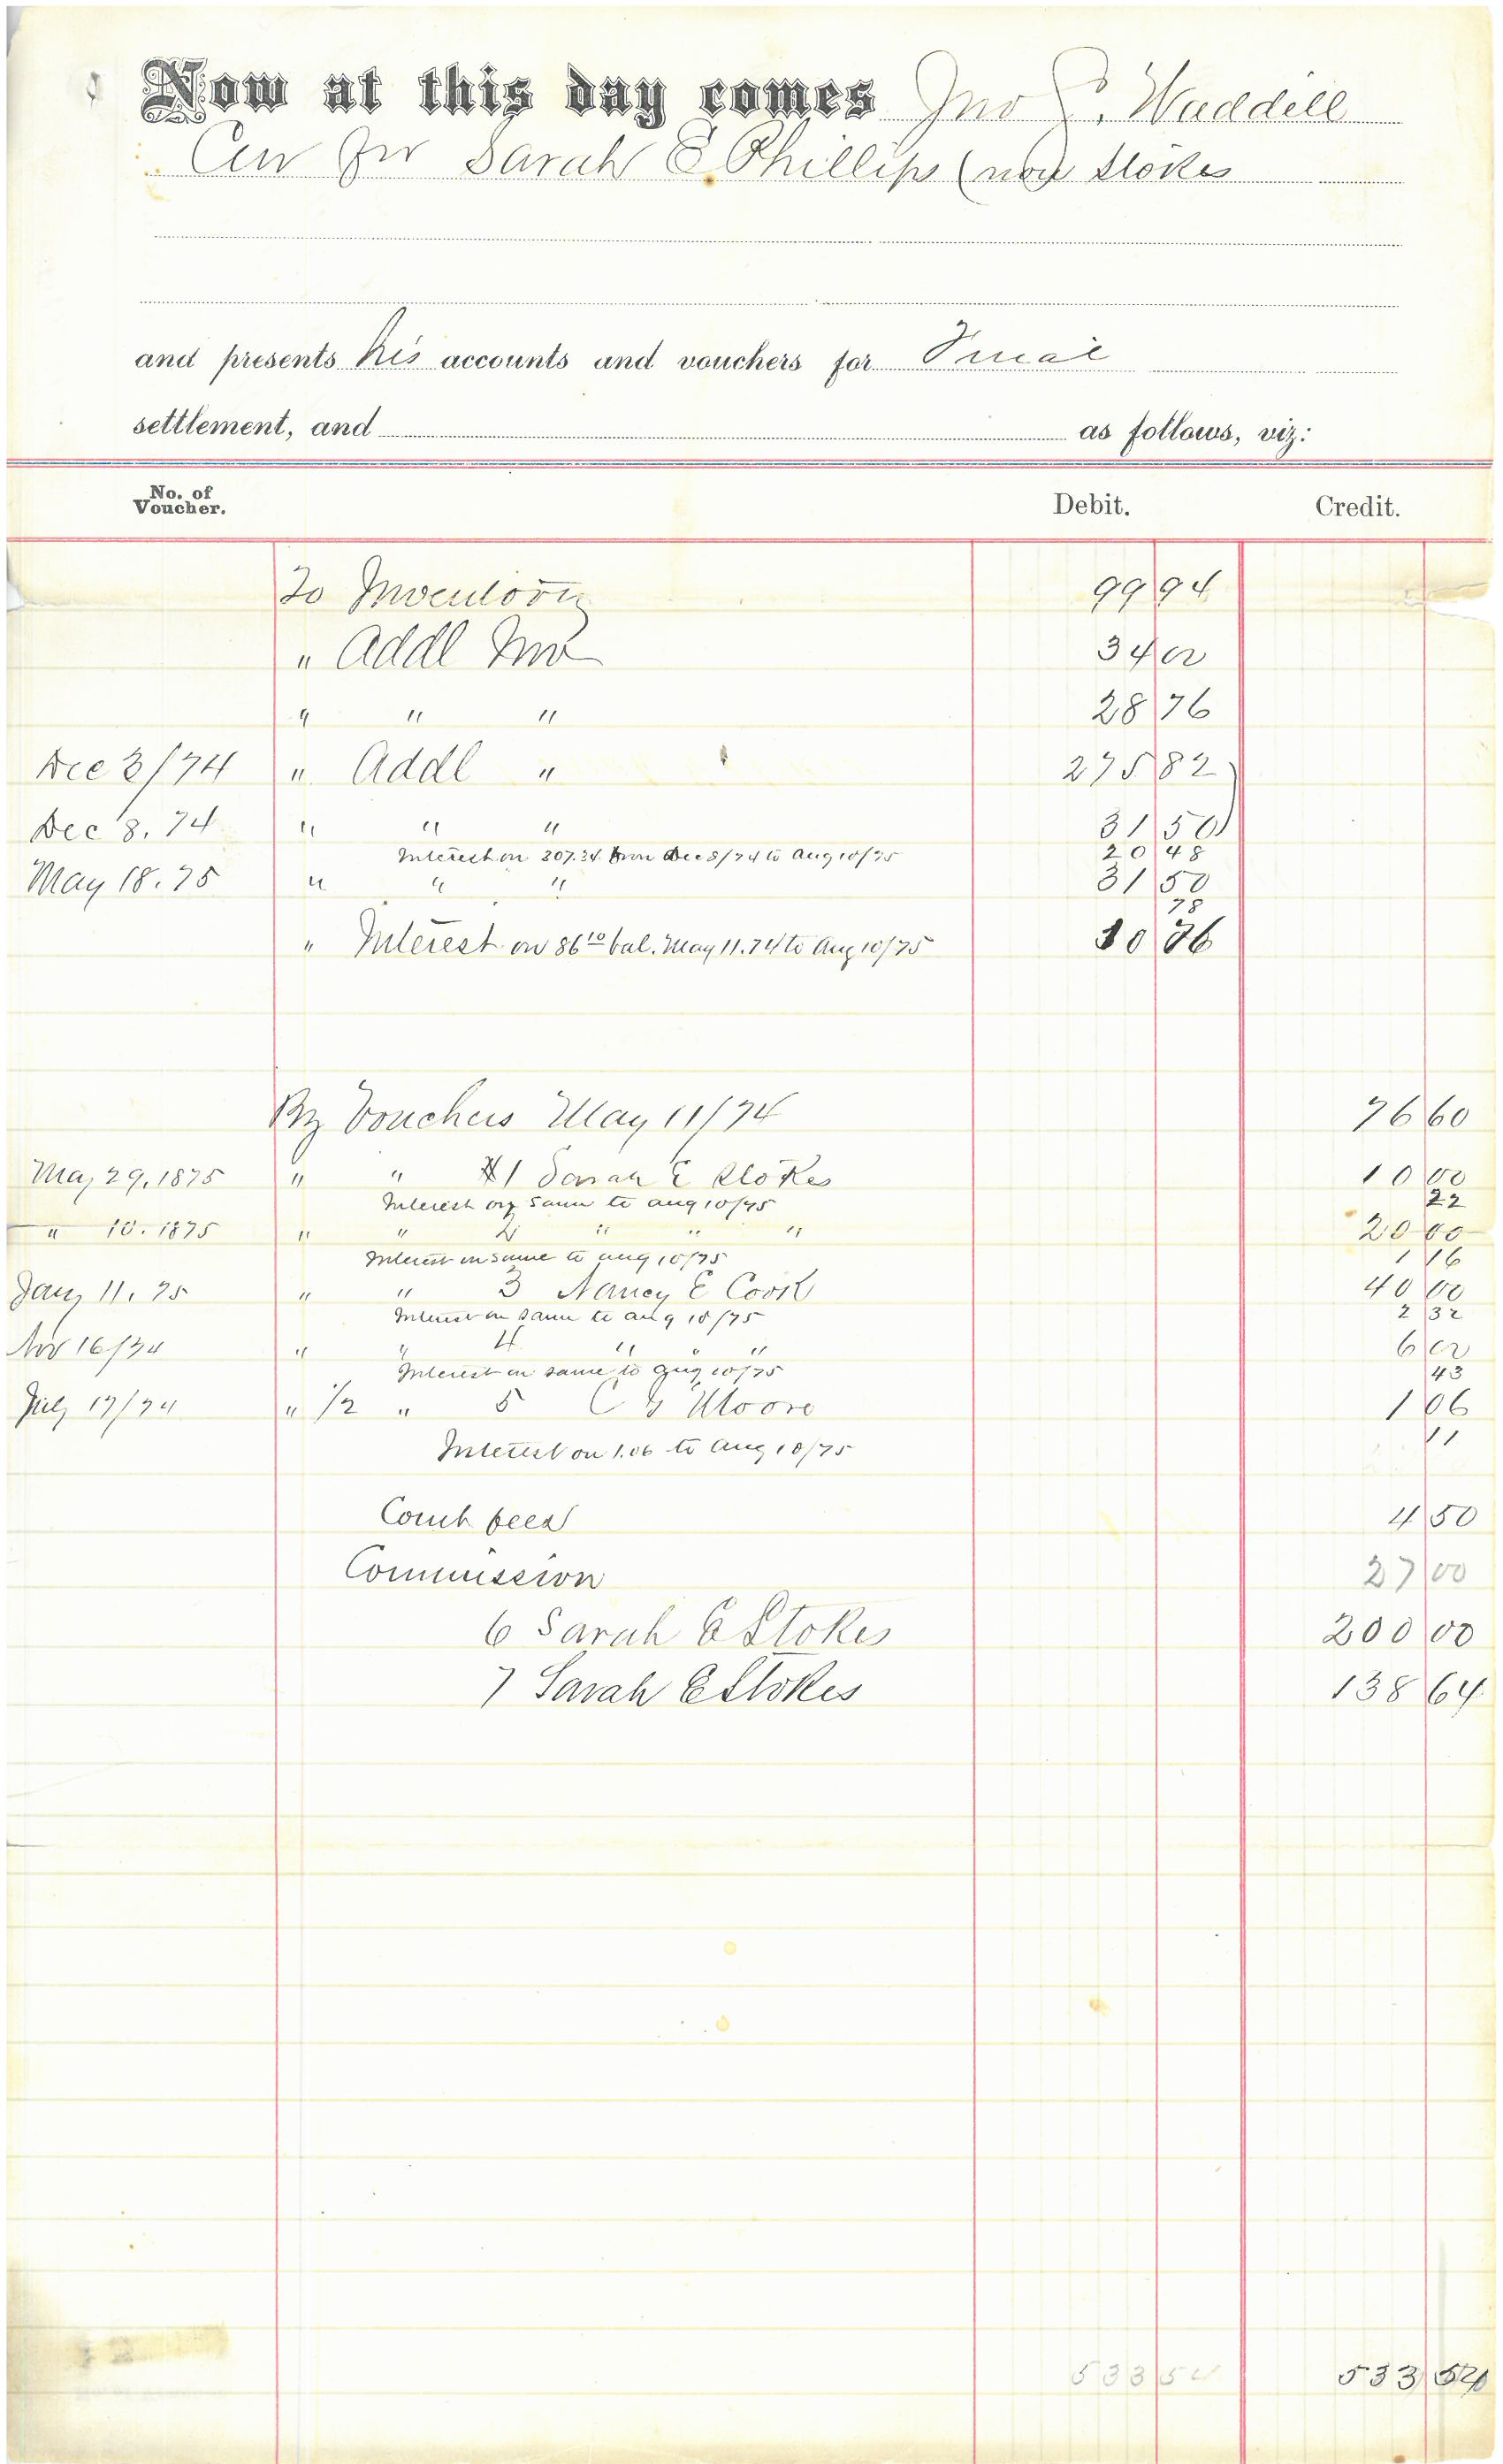 Now at this day comes Jno C. Waddell
Cur for Sarah E Phillips (now Stokes
and presents his accounts and vouchers for Final
settlement, and as follows, viz:
No. of Voucher. Debit. Credit.
To Inventory 99 94
" Addl Inv 34 00
" " " 28 76
Dec 3/74 " Addl " 275 82
Dec 8. 74 " " " 31 50
Interest on 307.34 from Dec 8/74 to Aug 10/75 20 48
May 18. 75 " " " 31 50
78
" Interest on 86 10 bal. May 11. 74 to Aug 10/75 10 76
By Vouchers May 11/74 76 60
May 29, 1875 " " #1 Sarah E Stokes 10 00
Interest on same to aug 10/75 22
" 10. 1875 " " 2 " " " 20 00
Interest on same to aug 10/75 1 16
Jany 11. 75 " " 3 Nancy E Cook 40 00
Interest on same to aug 10/75 2 32
Nov 16/74 " " 4 " " " 6 00
Interest on same to Aug 10/75 43
July 17/74 " 1/2 " 5 C G Moore 1 06
Interest on 1.06 to Aug 10/75 11
Court fees 4 50
Commission 27 00
6 Sarah E Stokes 200 00
7 Sarah E Stokes 138 64
533 54 533 54